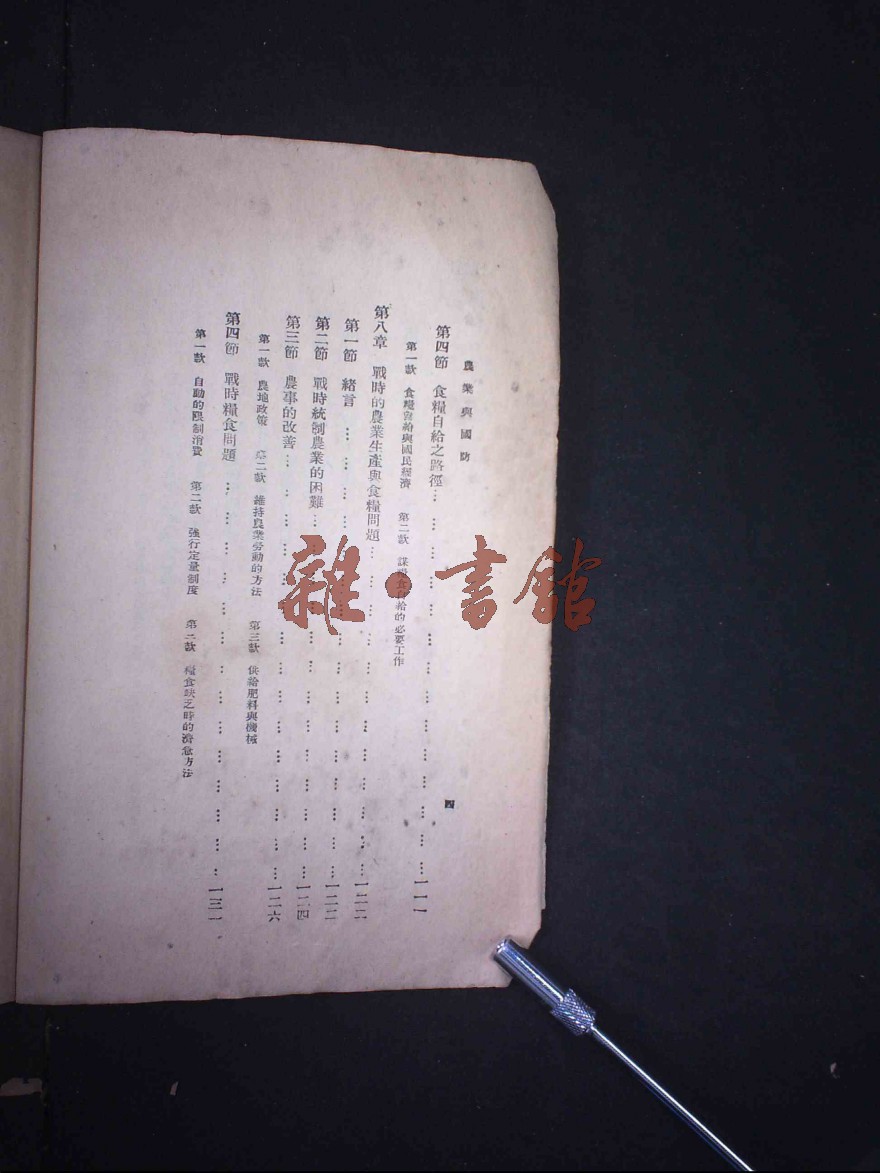 農業與國防
四
第四節 食糧自給之路徑……一一一
第一款 食糧自給與國民經濟 第二款 謀糧食自給的必要工作
第八章 戰時的農業生產與食糧問題……一二二
第一節 緒言……一二二
第二節 戰時統制農業的困難……一二四
第三節 農事的改善……一二六
第一款 農地政策 第二款 維持農業勞動的方法 第三款 供給肥料與機械
第四節 戰時糧食問題……一三一
第一款 自動的限制消費 第二款 強行定量制度 第三款 糧食缺乏時的濟急方法
雜·書館